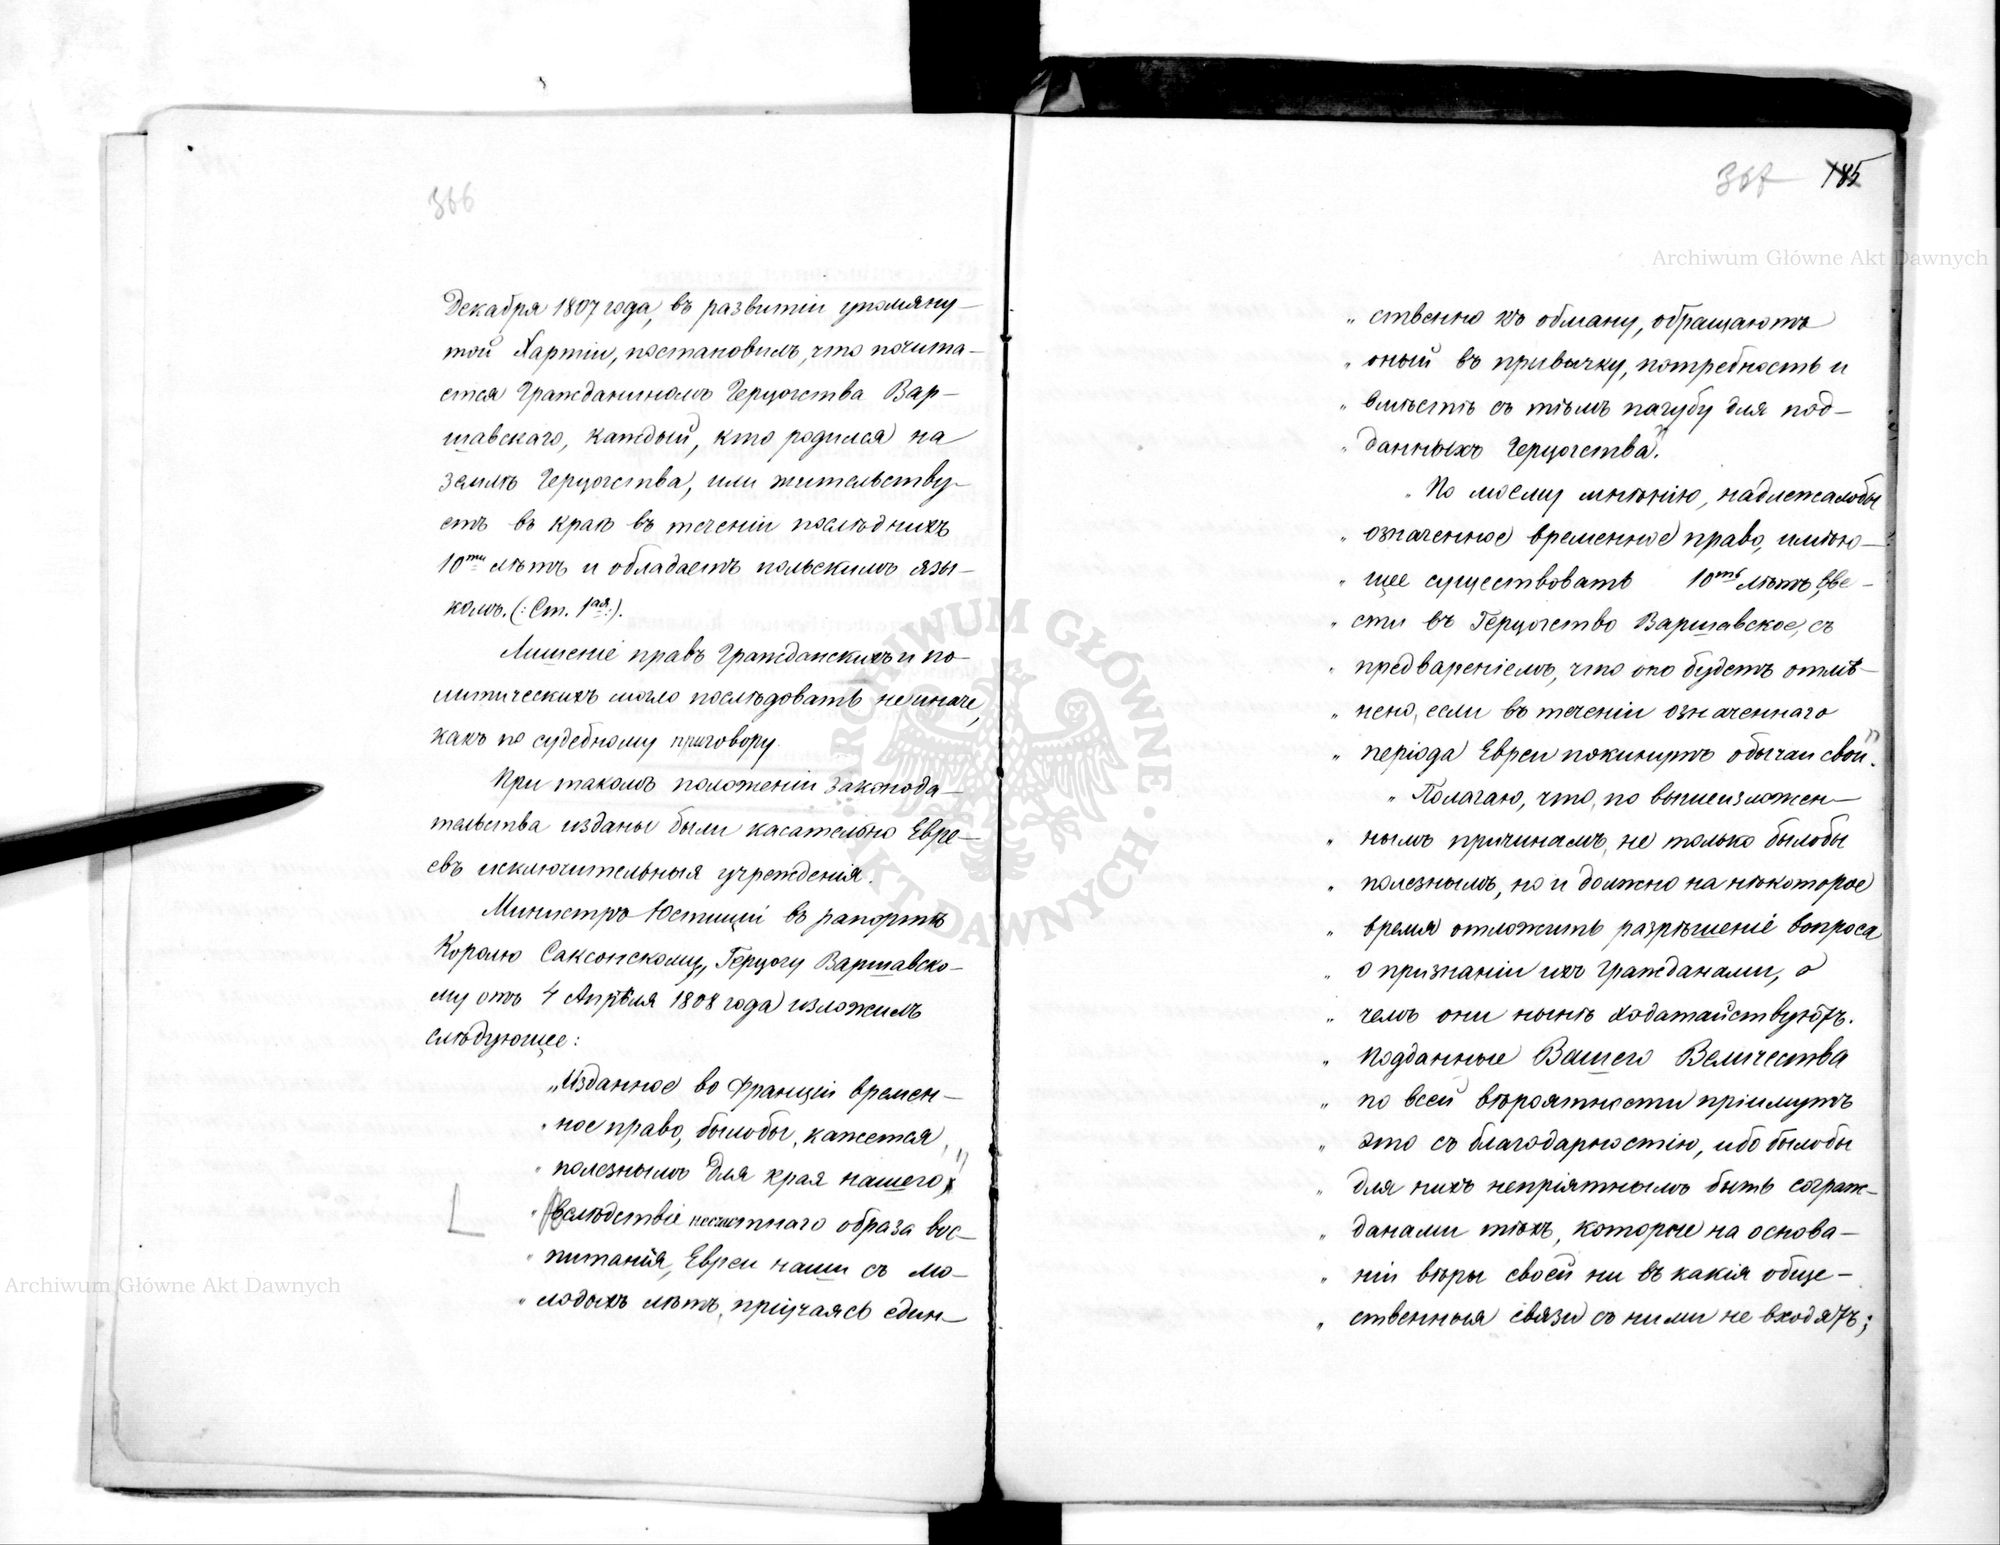 366
Декабря 1807 года, въ развитіи упомяну-
той Хартіи, постановилъ, что почита-
ется Гражданиномъ Герцогства Вар-
шавскаго, каждый, кто родился на
землѣ Герцогства, или жительству-
етъ въ краѣ въ теченіи послѣднихъ
10ти лѣтъ и обладаетъ польскимъ язы-
комъ. (: Ст. 1ая :).
Лишеніе правъ Гражданскихъ и по-
литическихъ могло послѣдовать не иначе,
какъ по судебному приговору.
При такомъ положеніи законода-
тельства изданы были касательно Евре-
евъ исключительныя учрежденія.
Министръ Юстиціи въ рапортѣ
Королю Саксонскому, Герцогу Варшавско-
му отъ 4 Апрѣля 1808 года изложилъ
слѣдующее:
„Изданное во Франціи времен-
„ ное право, былобы, кажется,
„ полезнымъ для края нашего,"
„ Вслѣдствіе несчастнаго образа вос-
„ питанія, Евреи наши съ мо-
„ лодыхъ лѣтъ, пріучаясь един-
367 185
„ ственно къ обману, обращаютъ
„ оный въ привычку, потребность и
„ вмѣстѣ съ тѣмъ пагубу для под-
„ данныхъ Герцогства".
„ По моему мнѣнію, надлежалобы
„ означенное временное право, имѣю-
„ щее существовать 10ть лѣтъ, вве-
„ сти въ Герцогство Варшавское, съ
„ предвареніемъ, что оно будетъ отмѣ-
„ нено, если въ теченіи означеннаго
„ періода Евреи покинутъ обычаи свои".
„ Полагаю, что, по вышеизложен-
„ нымъ причинамъ, не только былобы
„ полезнымъ, но и должно на нѣкоторое
„ время отложить разрѣшеніе вопроса
„ о признаніи ихъ Гражданами, о
„ чемъ они нынѣ ходатайствуютъ.
„ Подданные Вашего Величества
„ по всей вѣроятности пріимутъ
„ это съ благодарностію, ибо былобы
„ для нихъ непріятнымъ быть сограж-
„ данами тѣхъ, которые на основа-
„ ніи вѣры своей ни въ какія обще-
„ ственныя связи съ ними не входятъ;
Archiwum Główne Akt Dawnych
Archiwum Główne Akt Dawnych
ARCHIWUM GŁÓWNE AKT DAWNYCH